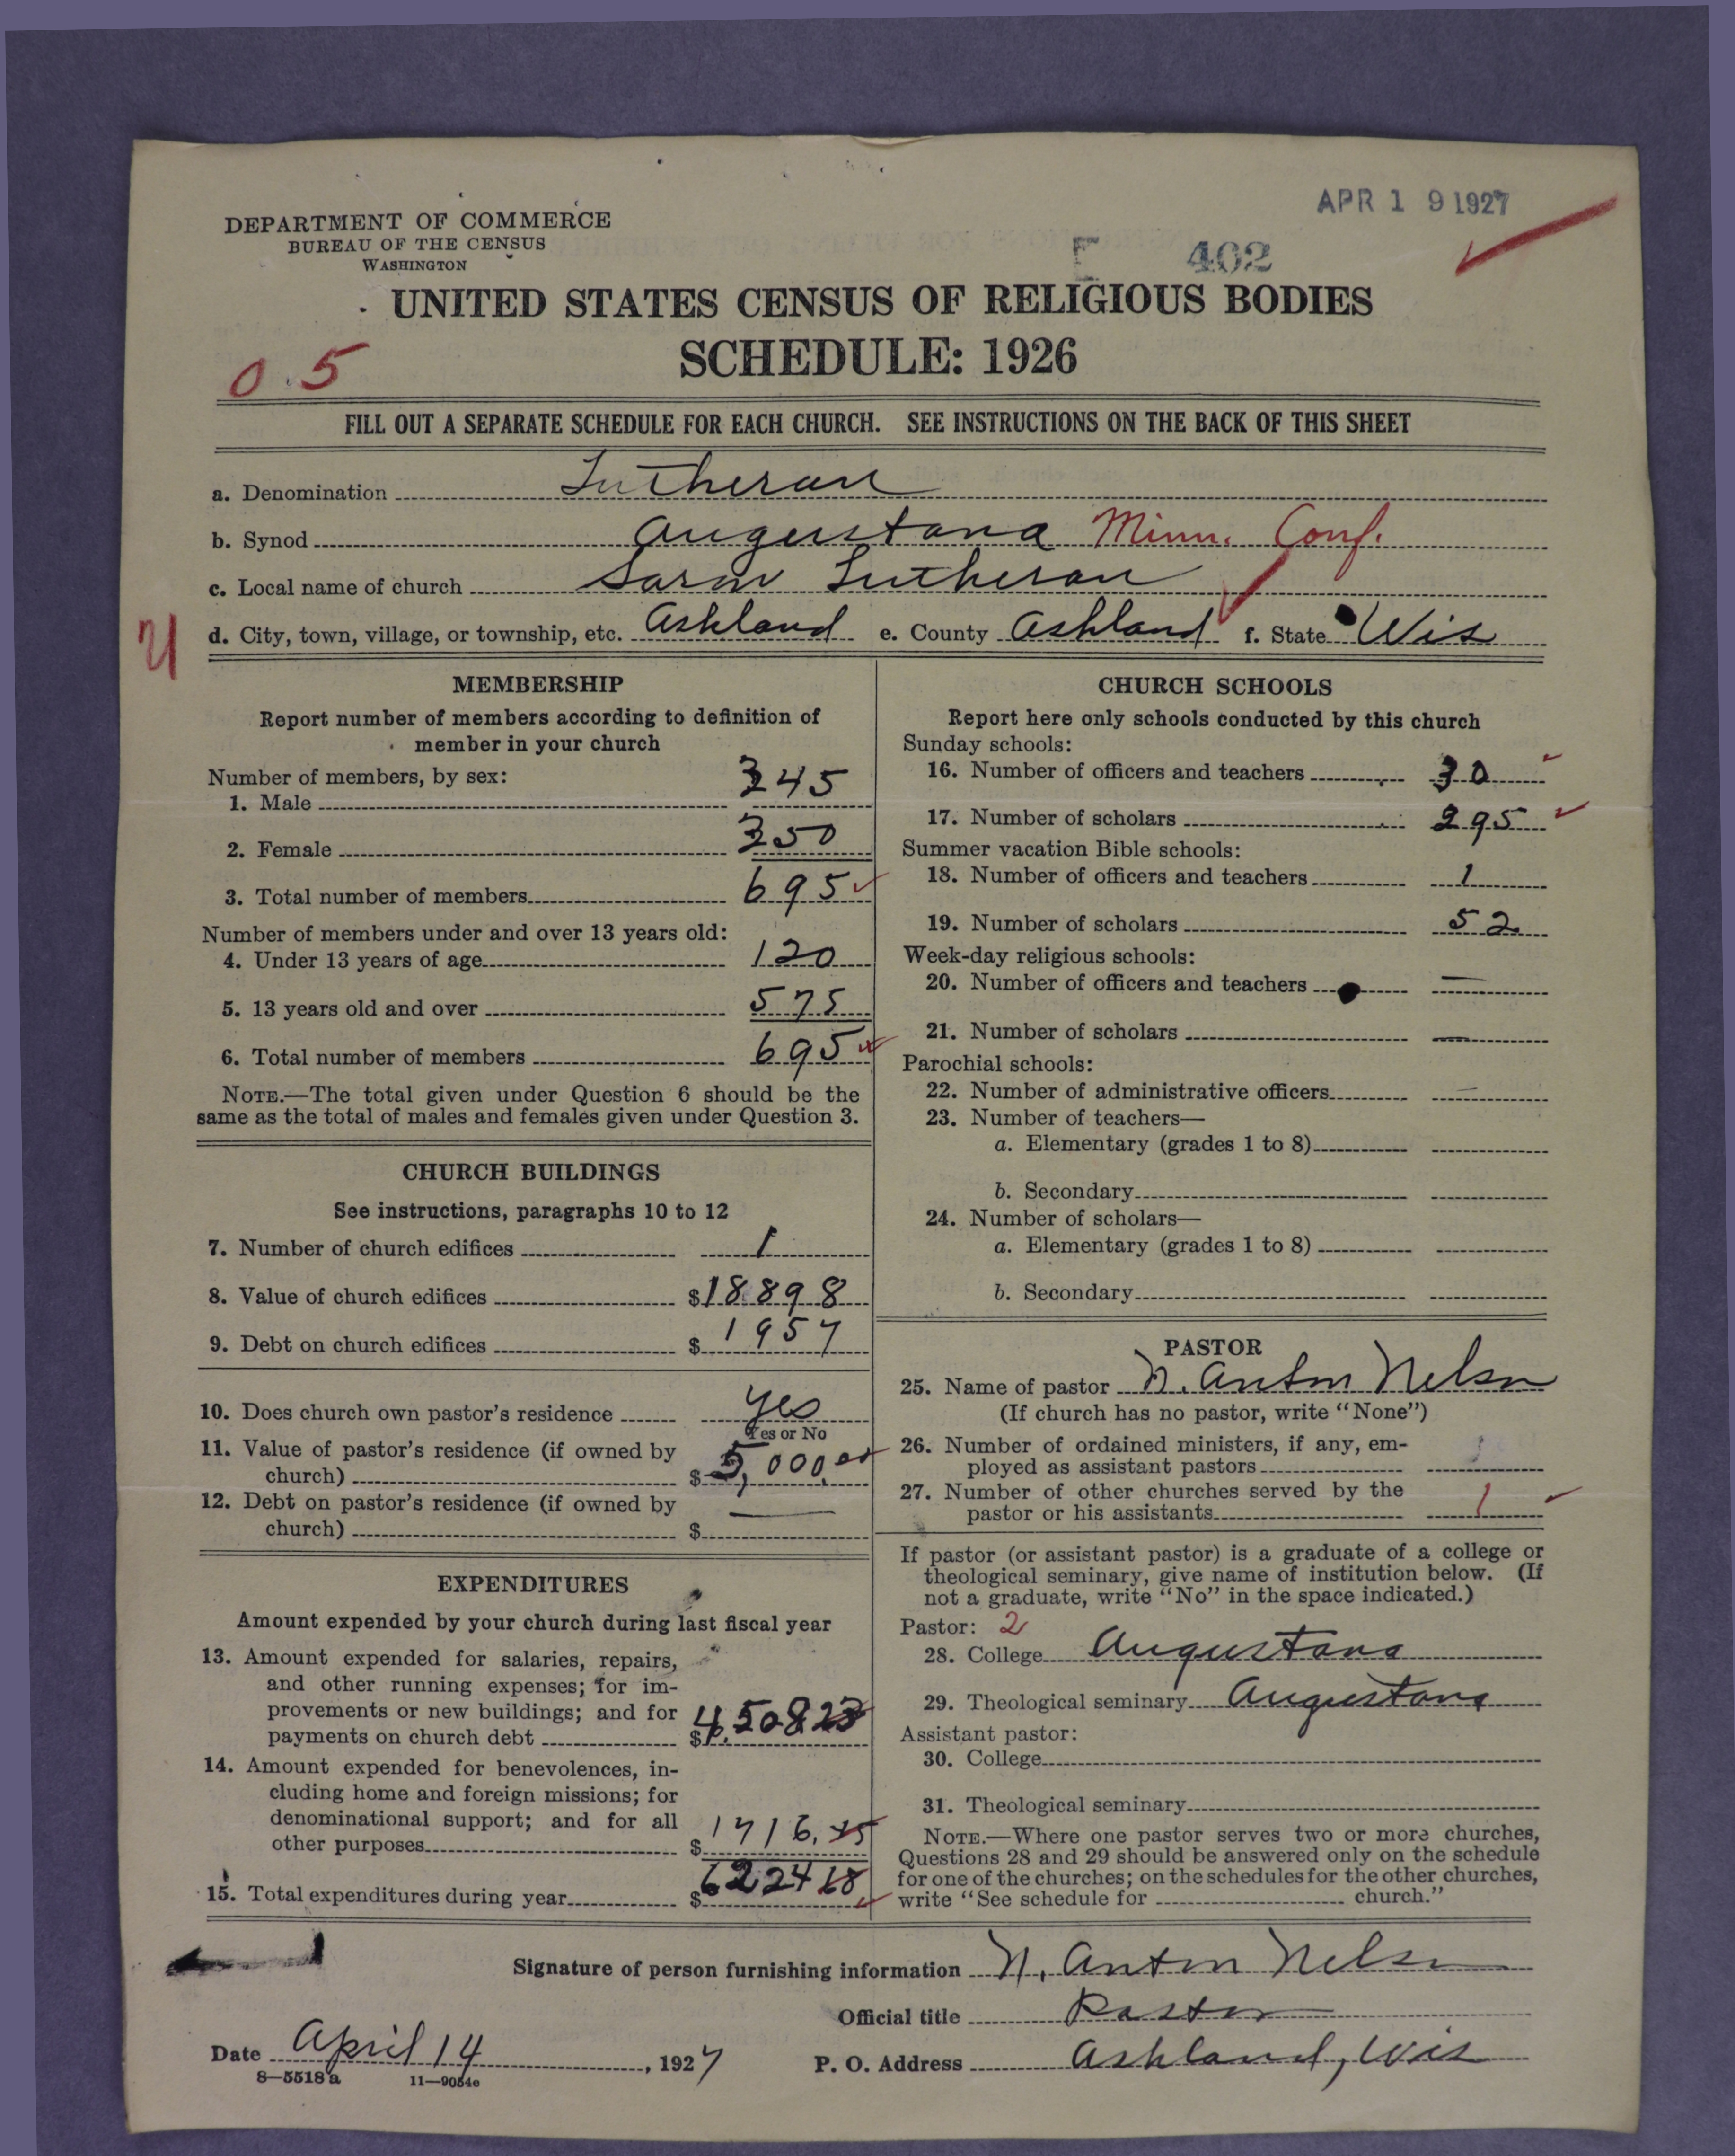 APR 19 1927
DEPARTMENT OF COMMERCE
BUREAU OF THE CENSUS
WASHINGTON
E 402
UNITED STATES CENSUS OF RELIGIOUS BODIES
SCHEDULE: 1926
0.5
FILL OUT A SEPARATE SCHEDULE FOR EACH CHURCH. SEE INSTRUCTIONS ON THE BACK OF THIS SHEET
a. Denomination Lutheran
b. Synod Augustana Minn. Conf.
c. Local name of church Lutheran
d. City, town, village, or township, etc. Ashland e. County Ashland f. State Wis
MEMBERSHIP
Report number of members according to definition of
member in your church
Number of members, by sex:
1. Male 345
2. Female 350
3. Total number of members 695
Number of members under and over 13 years old:
4. Under 13 years of age 120
5. 13 years old and over 575
6. Total number of members 695
NOTE.—The total given under Question 6 should be the
same as the total of males and females given under Question 3.
CHURCH BUILDINGS
See instructions, paragraphs 10 to 12
7. Number of church edifices 1
8. Value of church edifices $18898
9. Debt on church edifices $1957
10. Does church own pastor's residence yes
Yes or No
11. Value of pastor's residence (if owned by
church) $5,000.00
12. Debt on pastor's residence (if owned by
church) $ —
EXPENDITURES
Amount expended by your church during last fiscal year
13. Amount expended for salaries, repairs,
and other running expenses; for im-
provements or new buildings; and for
payments on church debt $4,508 23
14. Amount expended for benevolences, in-
cluding home and foreign missions; for
denominational support; and for all
other purposes $1716.
15. Total expenditures during year $6224 68
CHURCH SCHOOLS
Report here only schools conducted by this church
Sunday schools:
16. Number of officers and teachers 30
17. Number of scholars 295
Summer vacation Bible schools:
18. Number of officers and teachers 1
19. Number of scholars 52
Week-day religious schools:
20. Number of officers and teachers —
21. Number of scholars —
Parochial schools:
22. Number of administrative officers —
23. Number of teachers—
a. Elementary (grades 1 to 8)
b. Secondary
24. Number of scholars—
a. Elementary (grades 1 to 8)
b. Secondary
PASTOR
25. Name of pastor N. Anton Nelson
(If church has no pastor, write "None")
26. Number of ordained ministers, if any, em-
ployed as assistant pastors
27. Number of other churches served by the
pastor or his assistants 1
If pastor (or assistant pastor) is a graduate of a college or
theological seminary, give name of institution below. (If
not a graduate, write "No" in the space indicated.)
Pastor: 2
28. College Augustana
29. Theological seminary Augustana
Assistant pastor:
30. College
31. Theological seminary
NOTE.—Where one pastor serves two or more churches,
Questions 28 and 29 should be answered only on the schedule
for one of the churches; on the schedules for the other churches,
write "See schedule for church."
Signature of person furnishing information N. Anton Nelson
Official title Pastor
Date April 14, 1927 P. O. Address Ashland, Wis
8—5518a 11—9054e